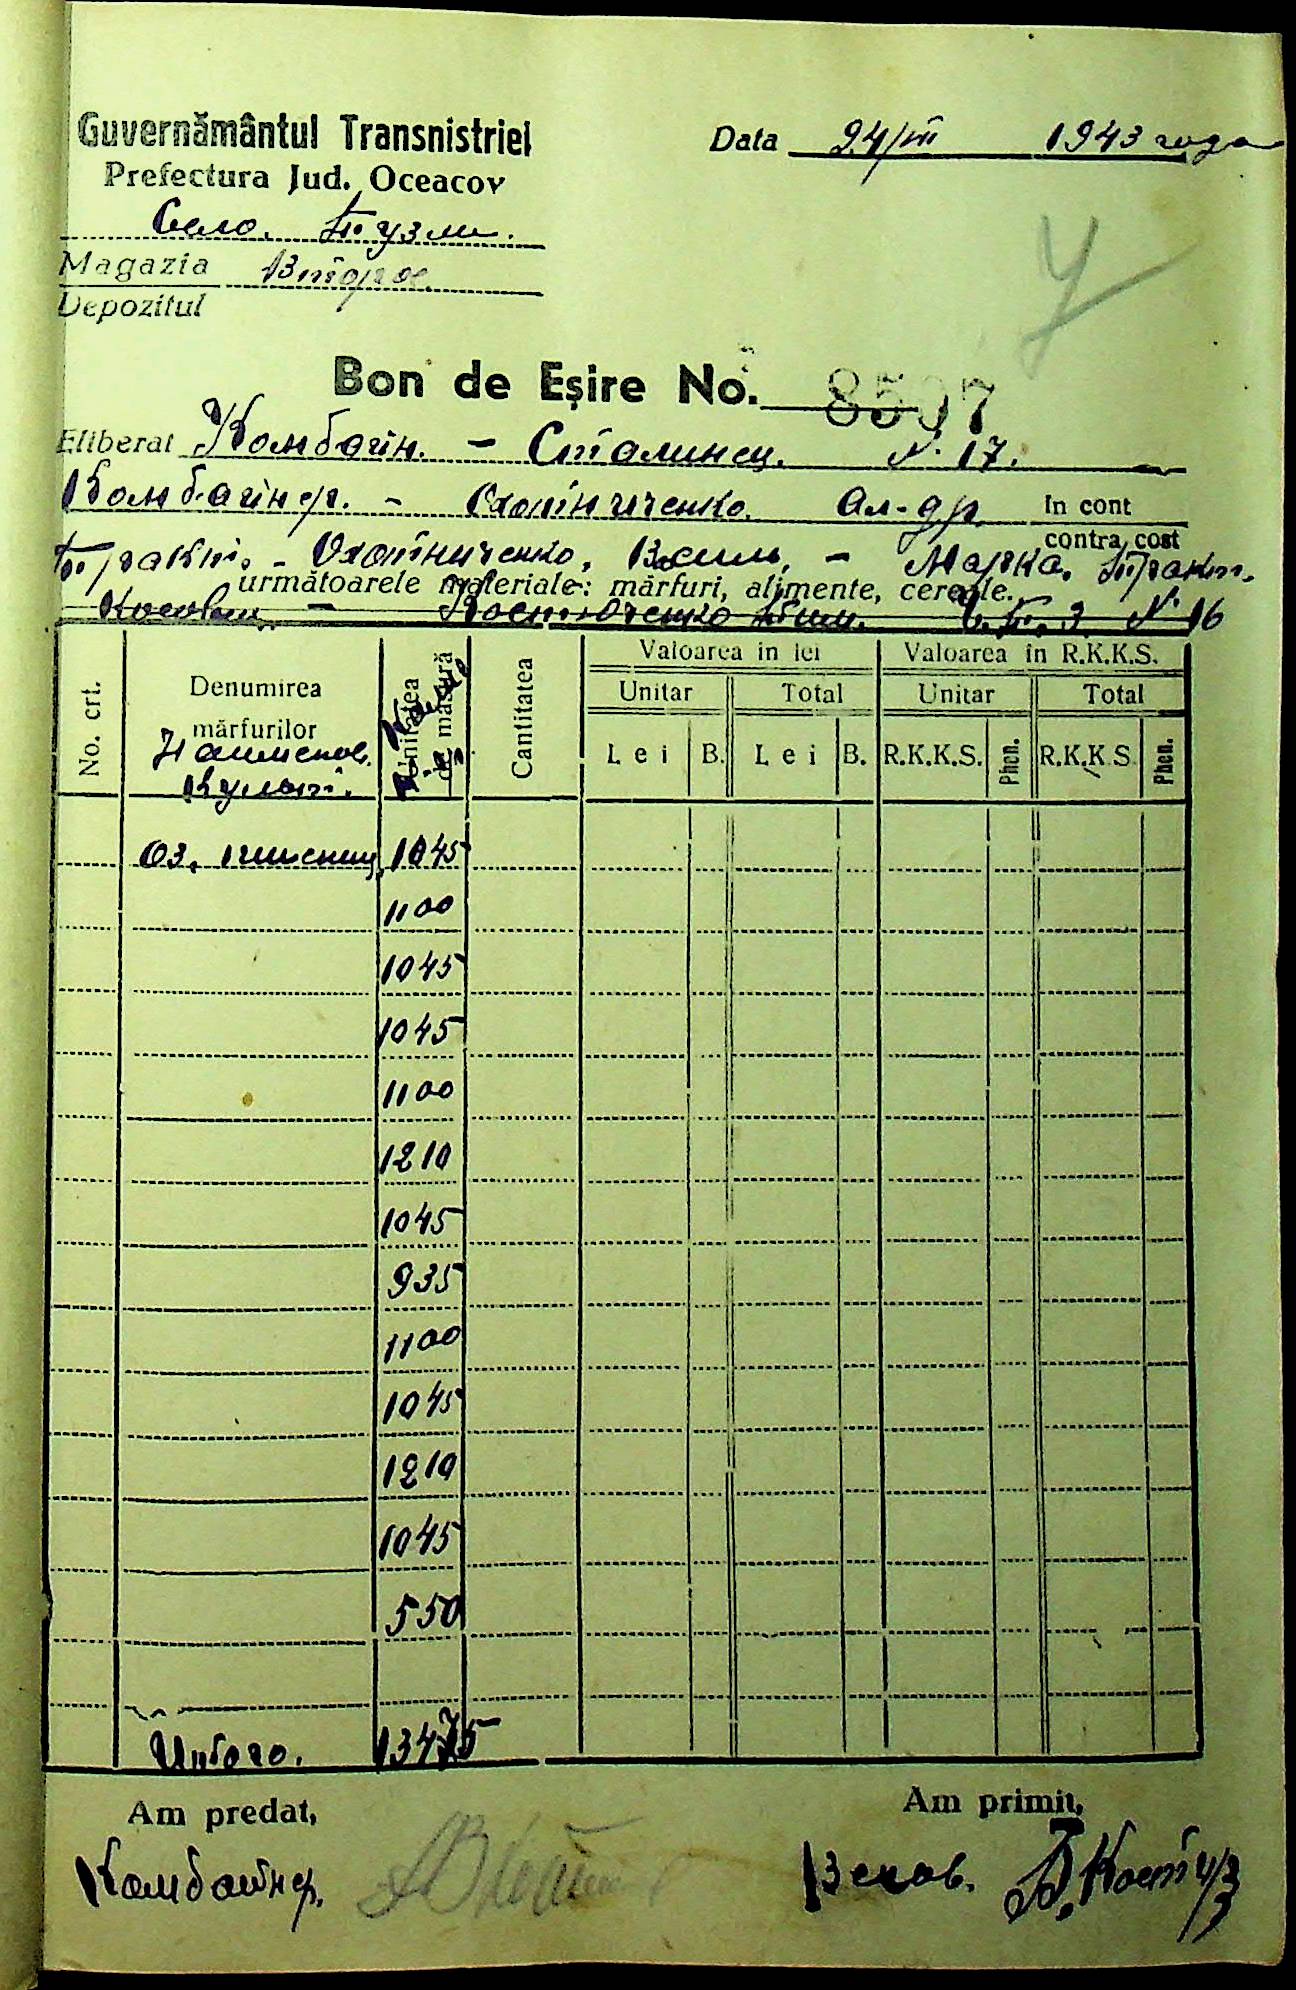 Guvernământul Transnistriei
Data 24/VII 1943 года
Prefectura Jud. Oceacov
Село. Тузли.
Magazia Второе.
Depozitul
Bon de Eşire No. 8507
Eliberat Комбайн. - Сталинец. N. 17.
Комбайнер. - Охотниченко. Ал-др. In cont
contra cost
Тракт. - Охотниченко, Васил, - Марка. Тракт.
următoarele materiale: mărfuri, alimente, cereale.
N. 16
No. crt.
Denumirea mărfurilor
Unitatea de măsură
Cantitatea
Valoarea in lei
Valoarea în R.K.K.S.
Unitar
Total
Unitar
Total
Lei B. Lei B. R.K.K.S. Phen. R.K.K.S Phen.
Наименов.
Культ.
Оз. пшениц 1045
1100
1045
1045
1100
1210
1045
935
1100
1045
1210
1045
550
Итого. 13475
Am predat,
Am primit,
Комбайнер.